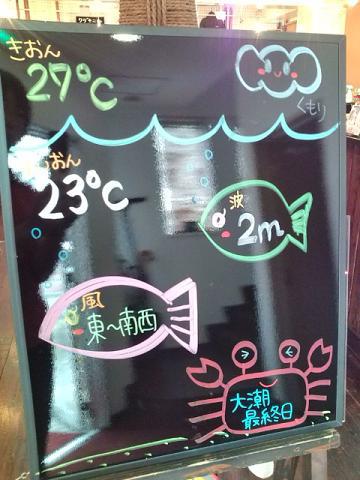 きおん
27℃
くもり
おん
23℃
波
2m
風
東〜南西
大潮
最終日